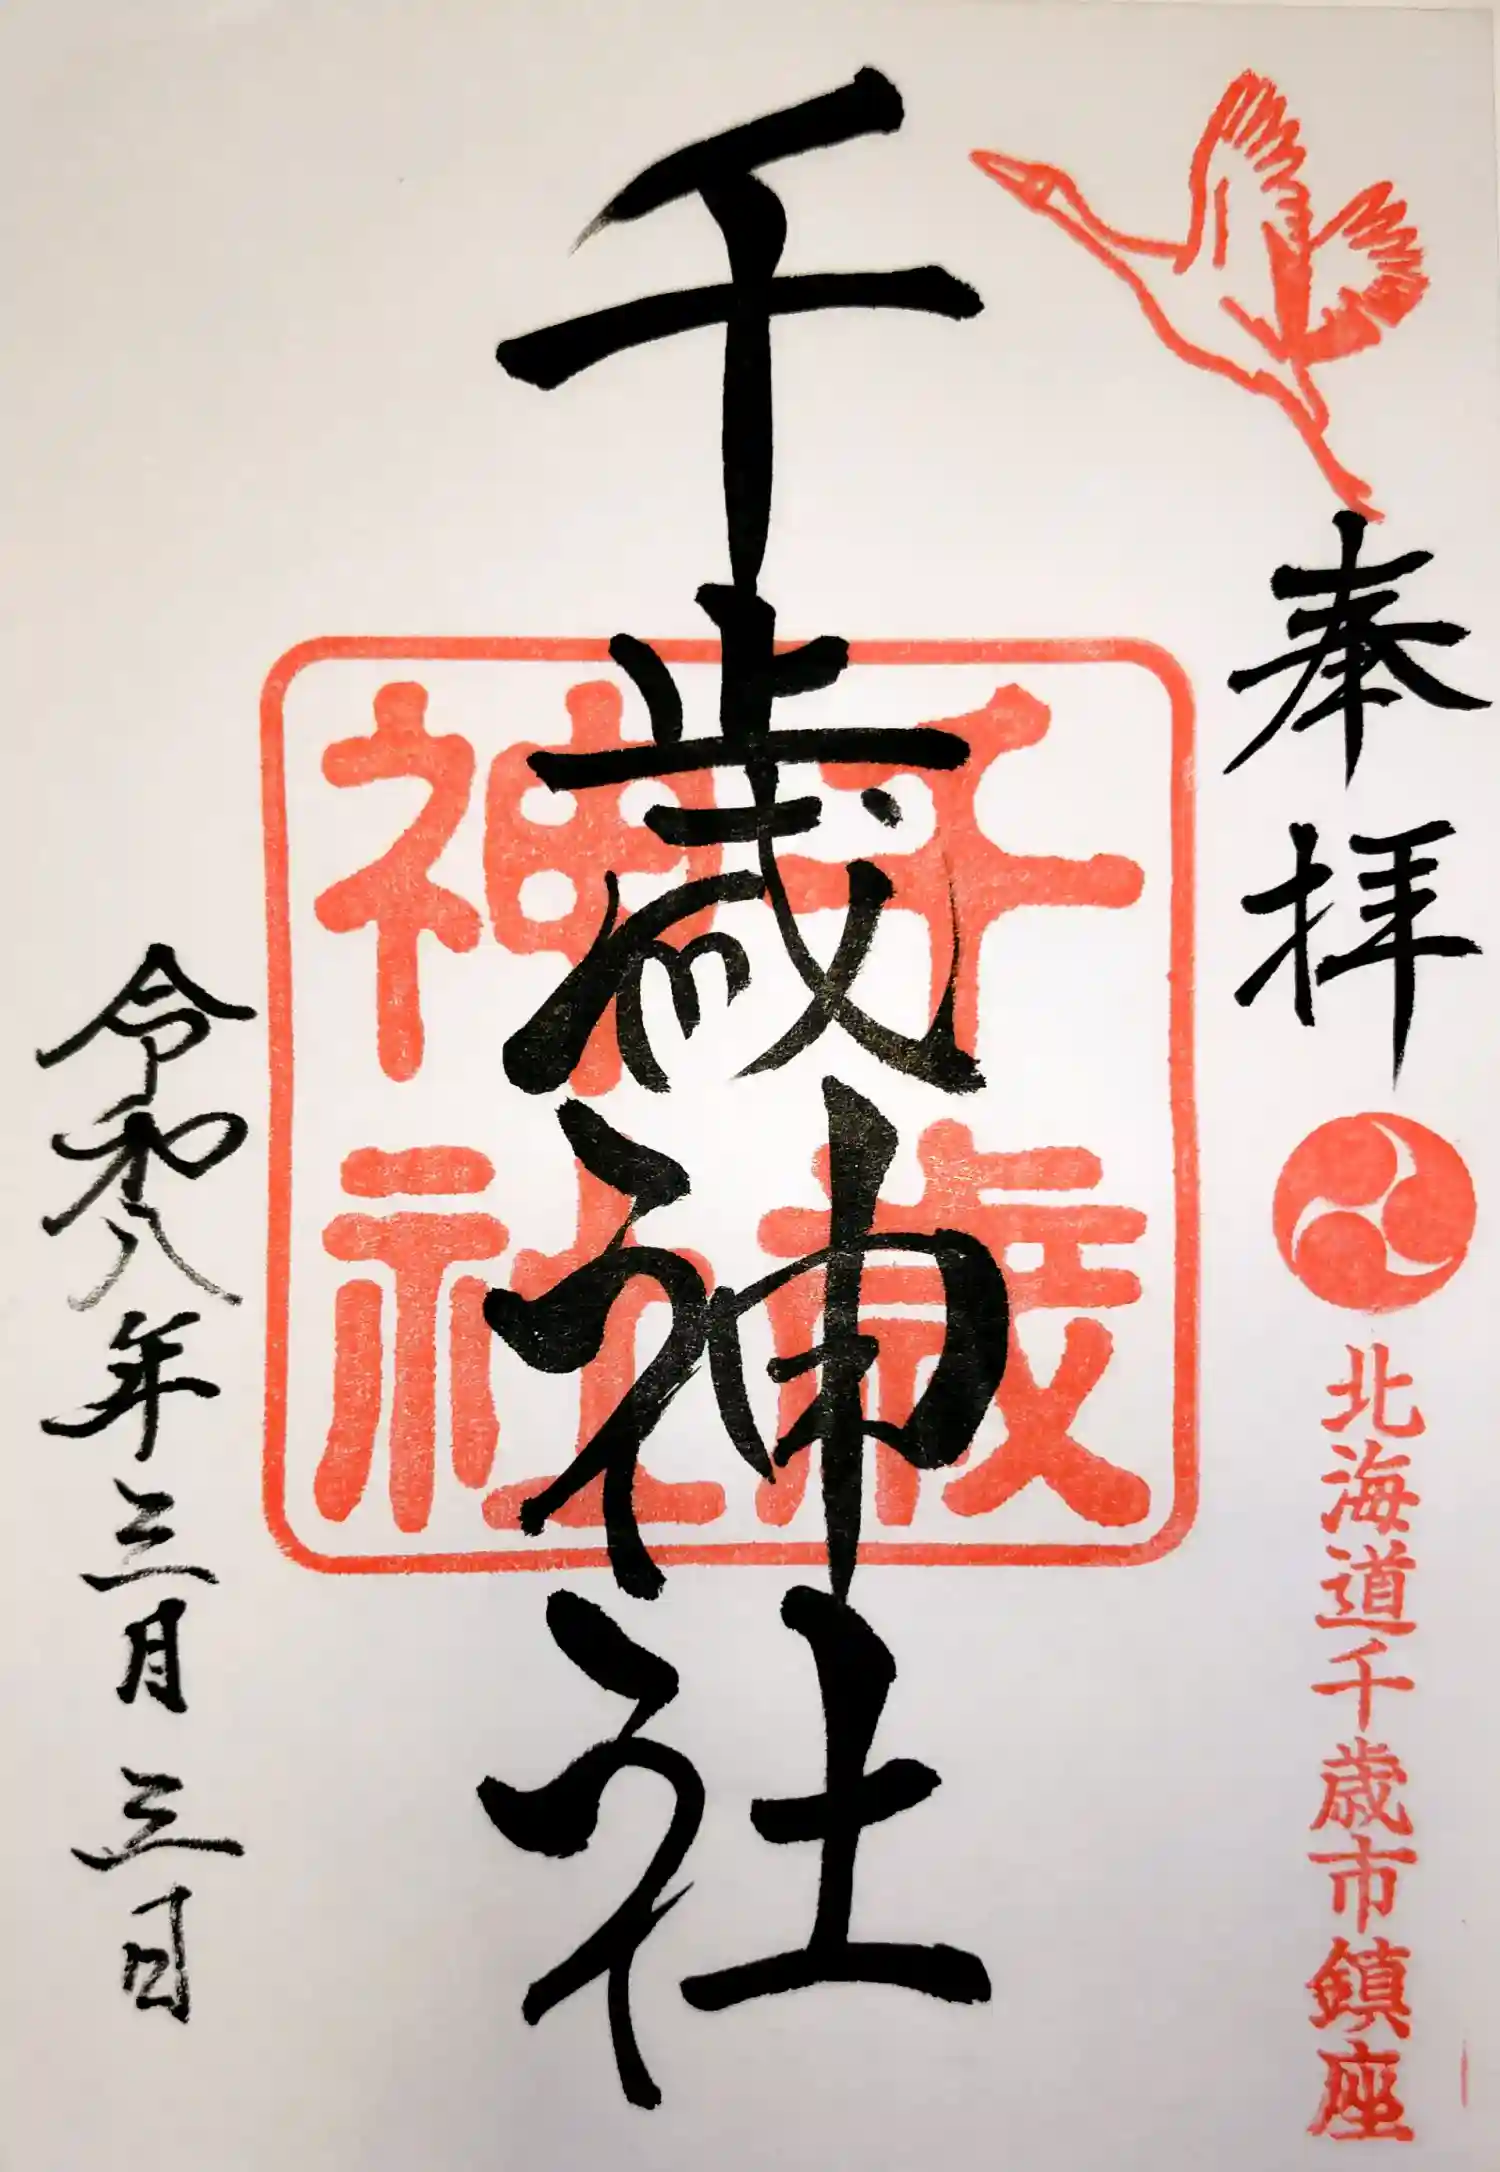 奉拝
北海道千歳市鎮座
千歳神社
千歳
神社
令和八年三月三日